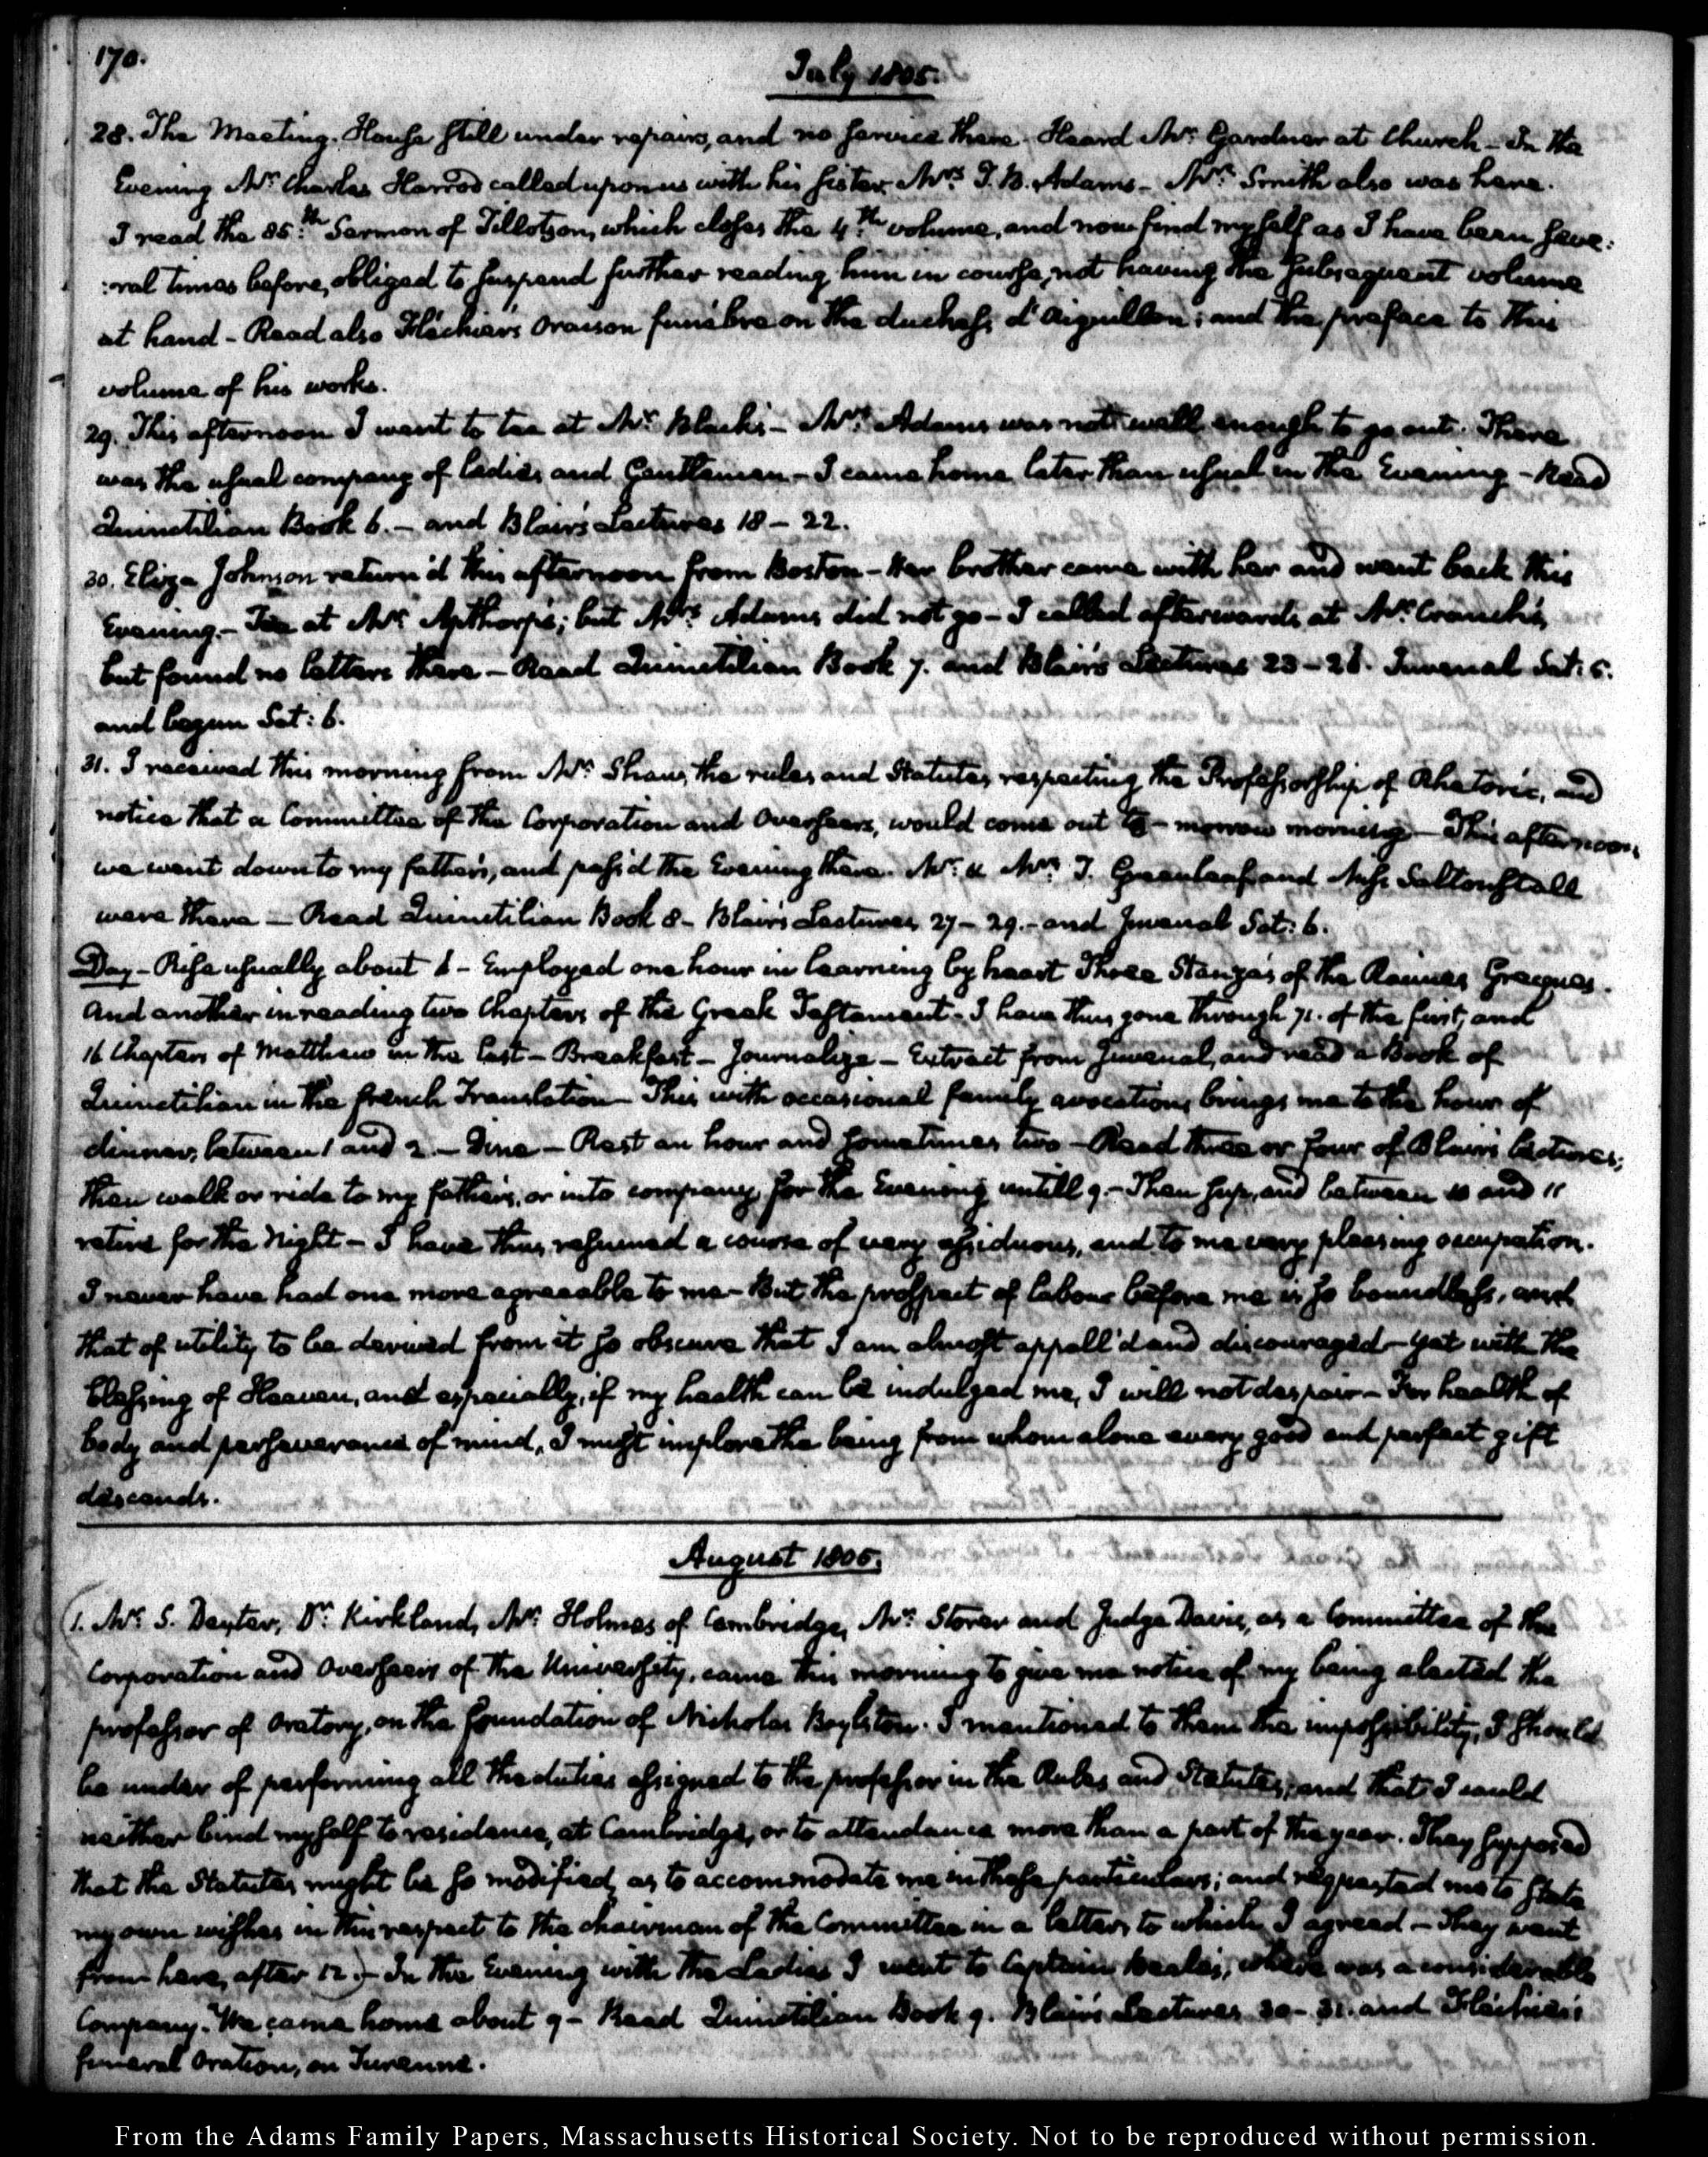 170.
July 1805.
28. The Meeting-House still under repairs, and no service there. Heard Mr. Gardner at Church - In the
Evening Mr. Charles Harrod called upon us with his sister Mrs. T. B. Adams - Mr. Smith also was here.
I read the 85.th Sermon of Tillotson, which closes the 4.th volume, and now find myself as I have been seve:
:ral times before, obliged to suspend further reading him in course, not having the subsequent volume
at hand - Read also Fléchier's Oraison funèbre on the duchess d'Aiguillon; and the preface to this
volume of his works.
29. This afternoon I went to tea at Mr. Black's - Mrs. Adams was not well enough to go out. There
was the usual company of ladies and Gentlemen - I came home later than usual in the Evening - Read
Quinctilian Book 6. - and Blair's Lectures 18 - 22.
30. Eliza Johnson return'd this afternoon from Boston - Her brother came with her and went back this
Evening. - Tea at Mr. Apthorp's; but Mrs. Adams did not go - I called afterwards at Mr. Cranch's,
but found no letters there - Read Quinctilian Book 7. and Blair's Lectures 23 - 26. Juvenal Sat: 5.
and began Sat: 6.
31. I received this morning from Mr. Shaw, the rules and Statutes respecting the Professorship of Rhetoric, and
notice that a Committee of the Corporation and Overseers, would come out to-morrow morning - This afternoon
we went down to my father's, and pass'd the Evening there. Mr. & Mrs. T. Greenleaf and Miss Saltonstall
were there - Read Quinctilian Book 8 - Blair's Lectures 27 - 29. - and Juvenal Sat: 6.
Day - Rise usually about 6 - Employed one hour in learning by heart Three Stanza's of the Racines Grecques.
And another in reading two Chapters of the Greek Testament - I have thus gone through 71. of the first, and
16 Chapters of Matthew in the last - Breakfast - Journalize - Extract from Juvenal, and read a Book of
Quinctilian in the french Translation - This with occasional family avocations brings me to the hour of
dinner, between 1 and 2. - Dine - Rest an hour and sometimes two - Read three or four of Blair's lectures;
then walk or ride to my father's, or into company for the Evening untill 9. - Then sup, and between 10 and 11
retire for the Night - I have thus resumed a course of very assiduous, and to me very pleasing occupation.
I never have had one more agreeable to me - But the prospect of labour before me is so boundless, and
that of utility to be derived from it so obscure that I am almost appall'd and discouraged - yet with the
blessing of Heaven, and especially, if my health can be indulged me, I will not despair - For health of
body and perseverance of mind, I must implore the being from whom alone every good and perfect gift
descends.
August 1805.
1. Mr. S. Dexter, Dr. Kirkland, Mr. Holmes of Cambridge, Mr. Storer and Judge Davis, as a Committee of the
Corporation and Overseers of the University, came this morning to give me notice of my being elected the
professor of Oratory, on the foundation of Nicholas Boylston. I mentioned to them the impossibility, I should
be under of performing all the duties assigned to the professor in the Rules and Statutes; and that I could
neither bind myself to residence, at Cambridge, or to attendance more than a part of the year. They supposed
that the Statutes might be so modified, as to accommodate me in those particulars; and requested me to state
my own wishes in this respect to the chairman of the Committee in a letter, to which I agreed - They went
from here, after 12.) - In the Evening with the Ladies I went to Captain Beale's, where was a considerable
Company. We came home about 9 - Read Quinctilian Book 9. Blair's Lectures 30 - 31. and Fléchier's
funeral Oration, on Turenne.
From the Adams Family Papers, Massachusetts Historical Society. Not to be reproduced without permission.